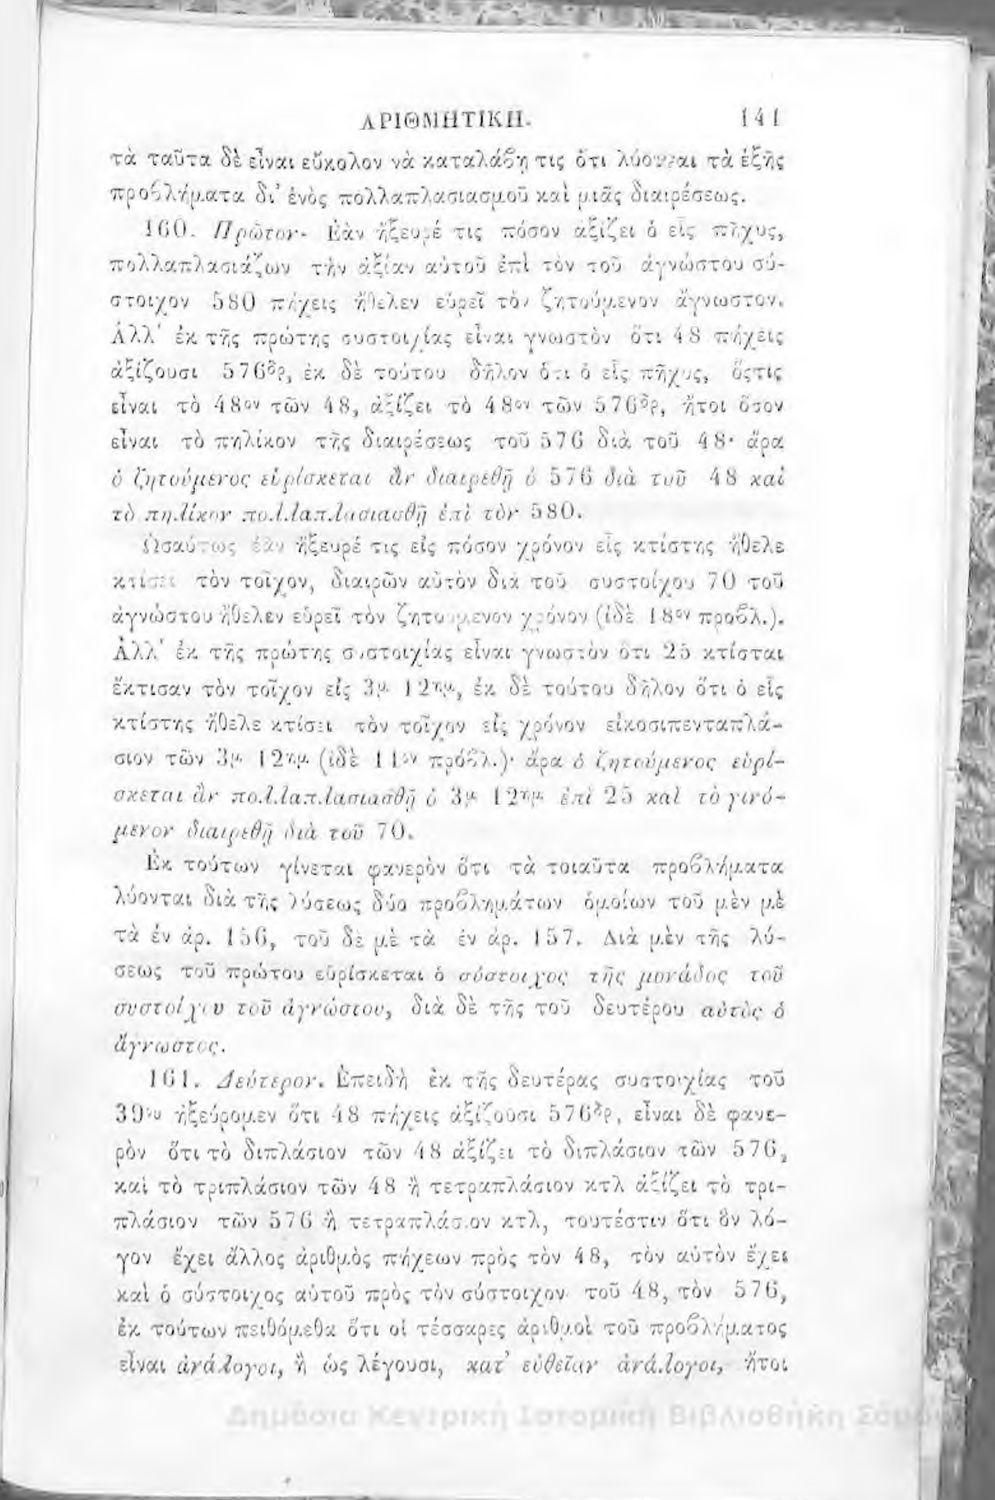 ΑΡΙΘΜΗΤΙΚΗ. 141
τὰ ταῦτα δὲ εἶναι εὔκολον νὰ καταλάβῃ τις ὅτι λύονται τὰ ἑξῆς
προβλήματα δι' ἑνὸς πολλαπλασιασμοῦ καὶ μιᾶς διαιρέσεως.
160. Πρῶτον· Ἐὰν ἤξευρέ τις πόσον ἀξίζει ὁ εἷς πῆχυς,
πολλαπλασιάζων τὴν ἀξίαν αὐτοῦ ἐπὶ τὸν τοῦ ἀγνώστου σύ-
στοιχον 580 πήχεις ἤθελεν εὑρεῖ τὸν ζητούμενον ἄγνωστον.
Ἀλλ' ἐκ τῆς πρώτης συστοιχίας εἶναι γνωστὸν ὅτι 48 πήχεις
ἀξίζουσι 576δρ, ἐκ δὲ τούτου δῆλον ὅτι ὁ εἷς πῆχυς, ὅςτις
εἶναι τὸ 48ον τῶν 48, ἀξίζει τὸ 48ον τῶν 576δρ, ἤτοι ὅσον
εἶναι τὸ πηλίκον τῆς διαιρέσεως τοῦ 576 διὰ τοῦ 48· ἄρα
ὁ ζητούμενος εὑρίσκεται ἂν διαιρεθῇ ὁ 576 διὰ τοῦ 48 καὶ
τὸ πηλίκον πολλαπλασιασθῇ ἐπὶ τὸν 580.
Ὡσαύτως ἐὰν ἤξευρέ τις εἰς πόσον χρόνον εἷς κτίστης ἤθελε
κτίσει τὸν τοῖχον, διαιρῶν αὐτὸν διὰ τοῦ συστοίχου 70 τοῦ
ἀγνώστου ἤθελεν εὑρεῖ τὸν ζητούμενον χρόνον (ἰδὲ 18ον προβλ.).
Ἀλλ' ἐκ τῆς πρώτης συστοιχίας εἶναι γνωστὸν ὅτι 25 κτίσται
ἔκτισαν τὸν τοῖχον εἰς 3μ 12ημ, ἐκ δὲ τούτου δῆλον ὅτι ὁ εἷς
κτίστης ἤθελε κτίσει τὸν τοῖχον εἰς χρόνον εἰκοσιπενταπλά-
σιον τῶν 3μ 12ημ (ἰδὲ 11ον πρόβλ.)· ἄρα ὁ ζητούμενος εὑρί-
σκεται ἂν πολλαπλασιασθῇ ὁ 3μ 12ημ ἐπὶ 25 καὶ τὸ γινό-
μενον διαιρεθῇ διὰ τοῦ 70.
Ἐκ τούτων γίνεται φανερὸν ὅτι τὰ τοιαῦτα προβλήματα
λύονται διὰ τῆς λύσεως δύο προβλημάτων ὁμοίων τοῦ μὲν μὲ
τὰ ἐν ἀρ. 156, τοῦ δὲ μὲ τὰ ἐν ἀρ. 157. Διὰ μὲν τῆς λύ-
σεως τοῦ πρώτου εὑρίσκεται ὁ σύστοιχος τῆς μονάδος τοῦ
συστοίχου τοῦ ἀγνώστου, διὰ δὲ τῆς τοῦ δευτέρου αὐτὸς ὁ
ἄγνωστος.
161. Δεύτερον. Ἐπειδὴ ἐκ τῆς δευτέρας συστοιχίας τοῦ
39ου ἠξεύρομεν ὅτι 48 πήχεις ἀξίζουσι 576δρ, εἶναι δὲ φανε-
ρὸν ὅτι τὸ διπλάσιον τῶν 48 ἀξίζει τὸ διπλάσιον τῶν 576,
καὶ τὸ τριπλάσιον τῶν 48 ἢ τετραπλάσιον κτλ ἀξίζει τὸ τρι-
πλάσιον τῶν 576 ἢ τετραπλάσιον κτλ, τουτέστιν ὅτι ὃν λό-
γον ἔχει ἄλλος ἀριθμὸς πήχεων πρὸς τὸν 48, τὸν αὐτὸν ἔχει
καὶ ὁ σύστοιχος αὐτοῦ πρὸς τὸν σύστοιχον τοῦ 48, τὸν 576,
ἐκ τούτων πειθόμεθα ὅτι οἱ τέσσαρες ἀριθμοὶ τοῦ προβλήματος
εἶναι ἀνάλογοι, ἢ ὡς λέγουσι, κατ' εὐθεῖαν ἀνάλογοι, ἤτοι
Δημόσια Κεντρική Ιστορική Βιβλιοθήκη